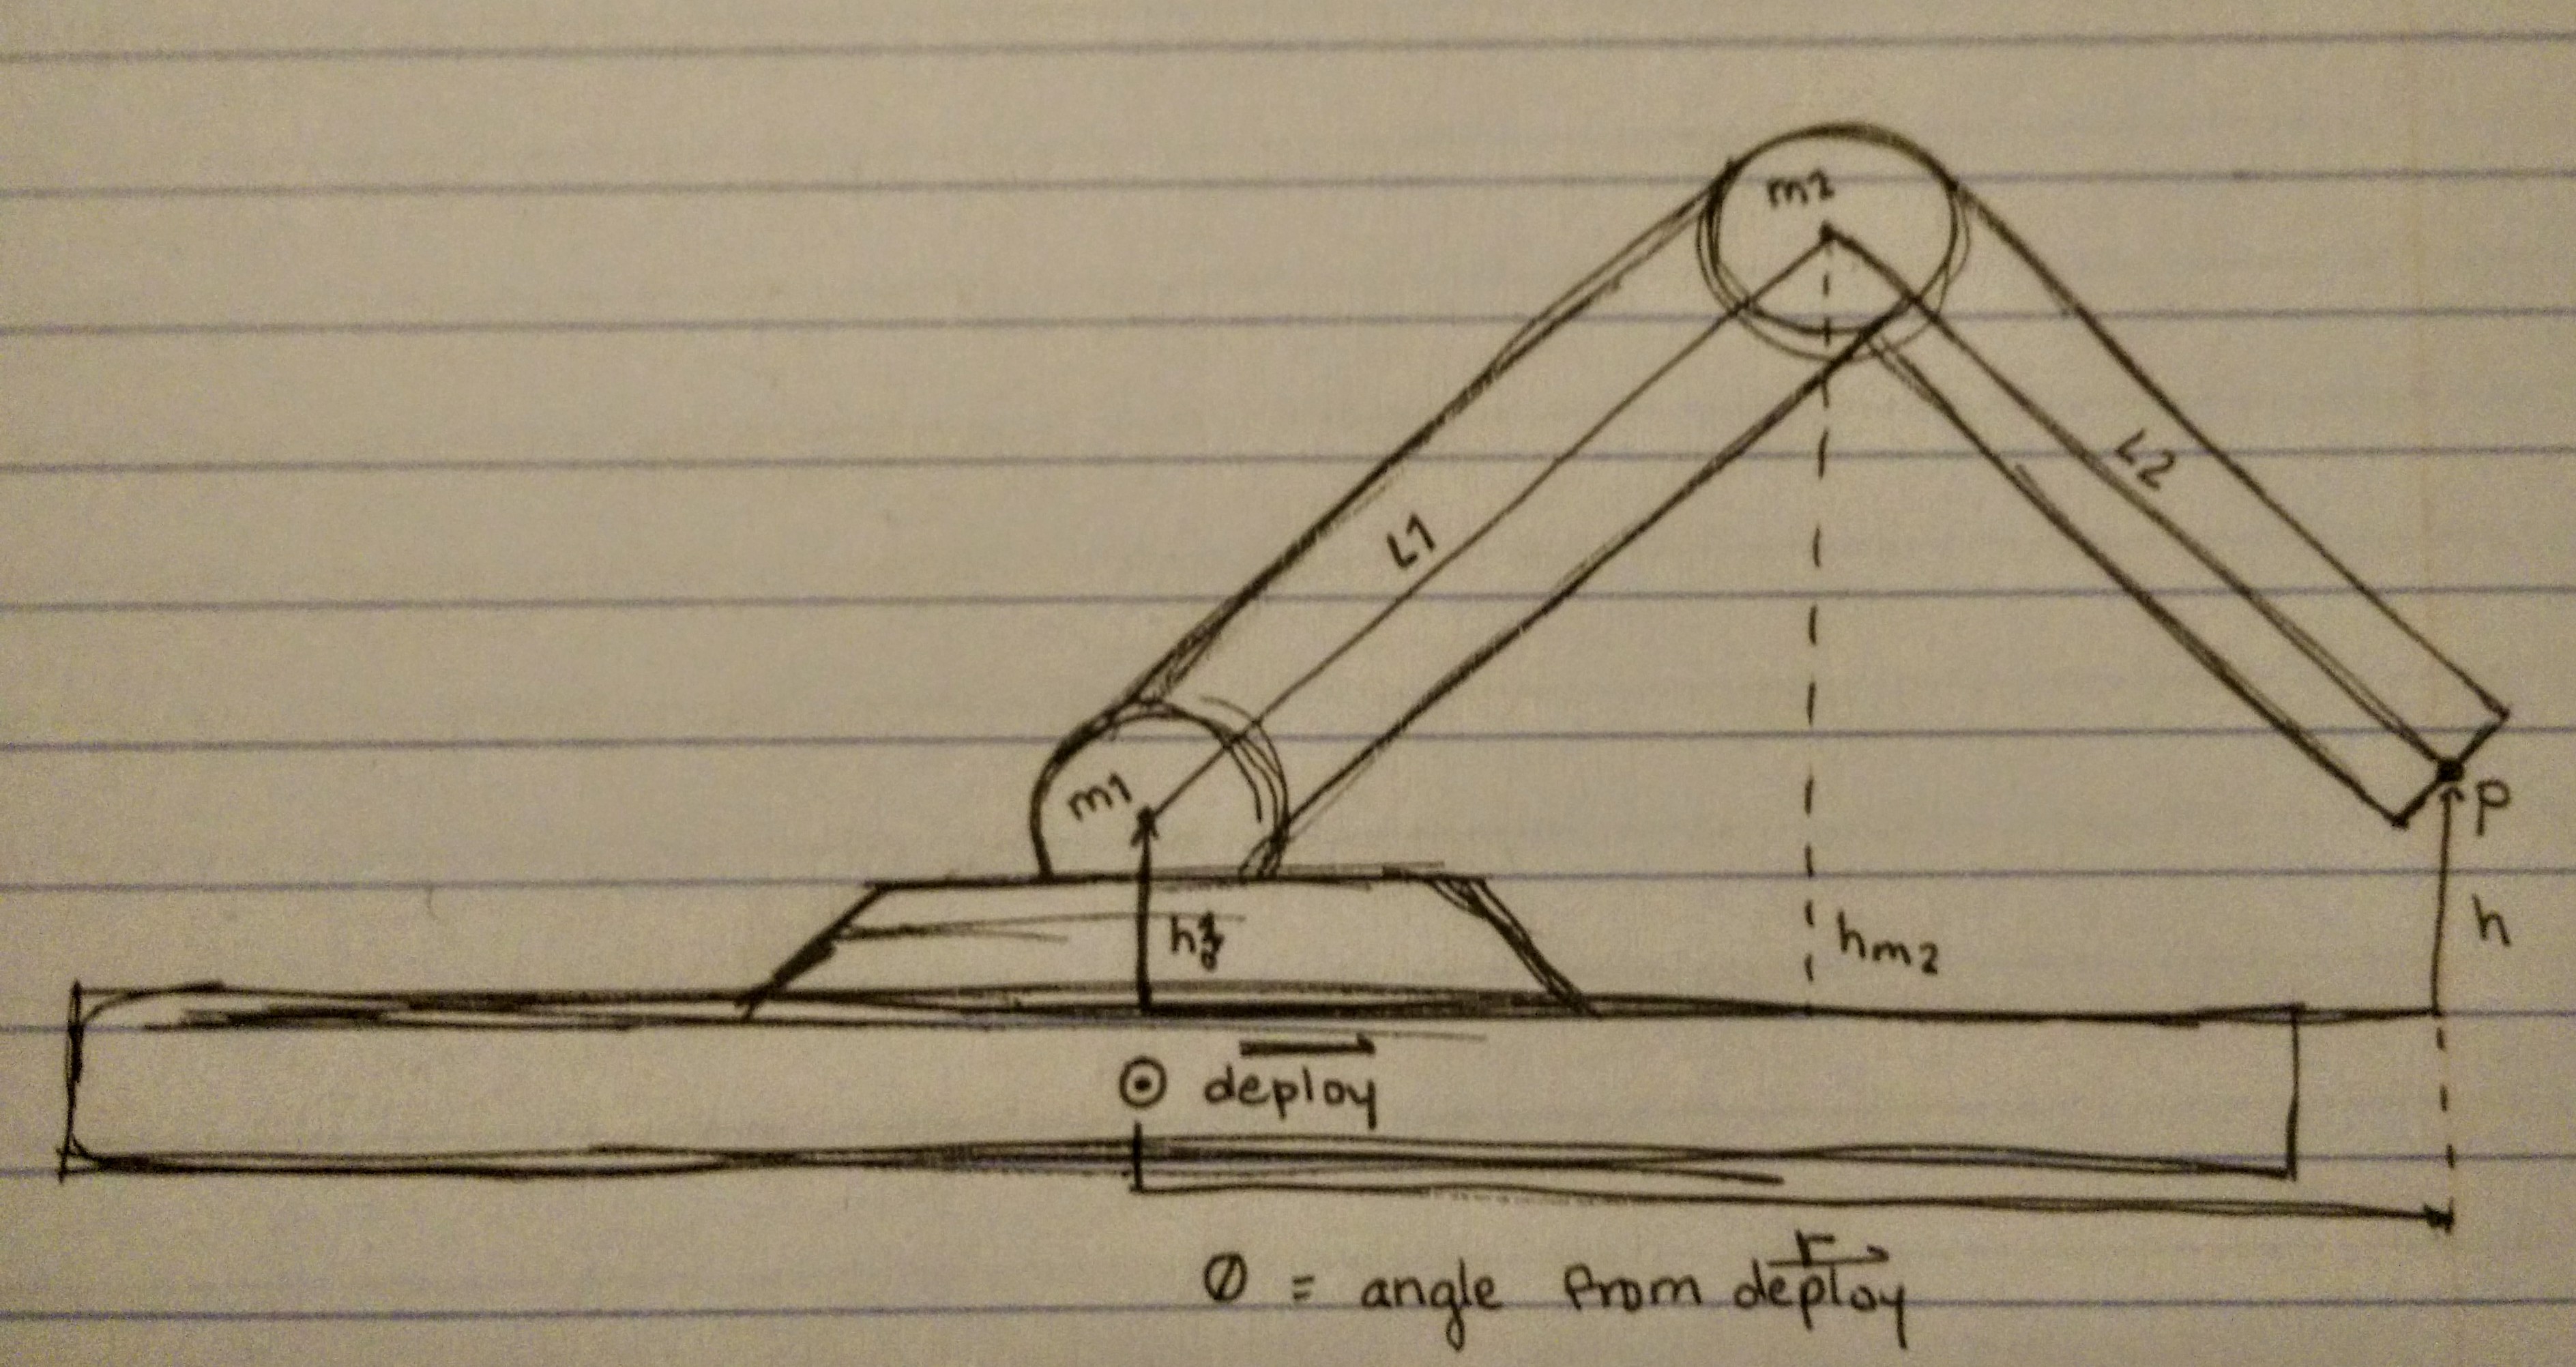 m2
L2
L1
m1
P
h
hm2
deploy
r
Ø = angle from deploy